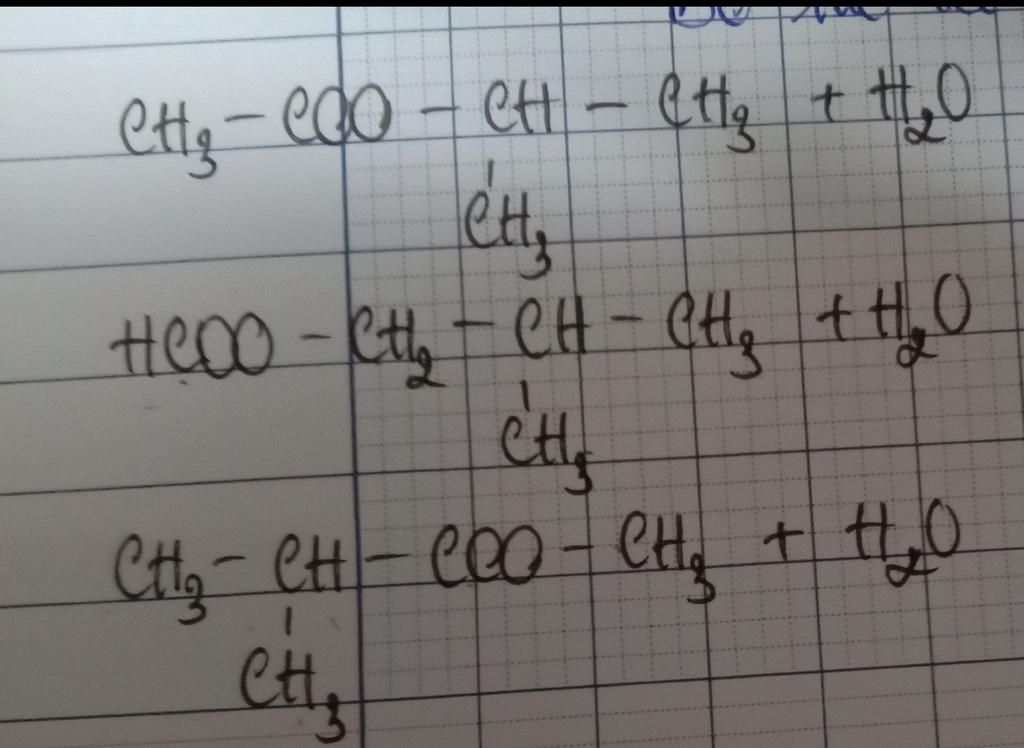 CH₃ – COO – CH – CH₃ + H₂O
CH₃
HCOO – CH₂ – CH – CH₃ + H₂O
CH₃
CH₃ – CH – COO – CH₃ + H₂O
CH₃